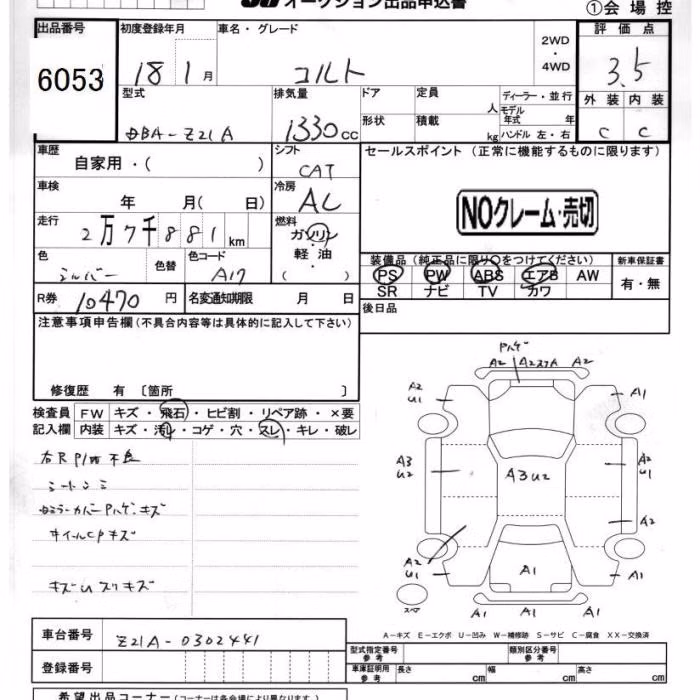 オークション出品申込書
①会場控
出品番号
6053
初度登録年月
18 1 月
車名・グレード
コルト
2WD
・
4WD
評価点
3.5
外装 内装
C C
型式
DBA-Z21A
排気量
1330 cc
ドア
形状
定員 人
積載 kg
ディーラー・並行
モデル年式 年
ハンドル 左・右
車歴
自家用・( )
シフト
CAT
セールスポイント (正常に機能するものに限ります)
NOクレーム・売切
車検
年 月( 日)
冷房
AC
走行
2万7千881 km
燃料
ガソリン
軽油
( )
色
シルバー
色替
色コード
A17
装備品 (純正品に限り○をつけてください)
PS PW ABS エアB AW
SR ナビ TV カワ
新車保証書
有・無
R券 10470 円
名変通知期限 月 日
後日品
注意事項申告欄 (不具合内容等は具体的に記入して下さい)
修復歴 有 〔箇所 〕
検査員記入欄
FW キズ・飛石・ヒビ割・リペア跡・×要
内装 キズ・汚れ・コゲ・穴・スレ・キレ・破レ
シートシミ
ホイールCPキズ
キズUスリキズ
Pハゲ
A2 A2ステA A2
A2
U1
A1
A3
U2
A3U2
A2
U1
A2
A2
U1
A1
A1
A1 A1 A1
スペア
A-キズ E-エクボ U-凹み W-補修跡 S-サビ C-腐食 XX-交換済
車台番号
Z21A-0302441
登録番号
型式指定番号
参考
類別区分番号
参考
車庫証明用
参考
長さ cm
幅 cm
高さ cm
希望出品コーナー (コーナーは各会場により異なります。)